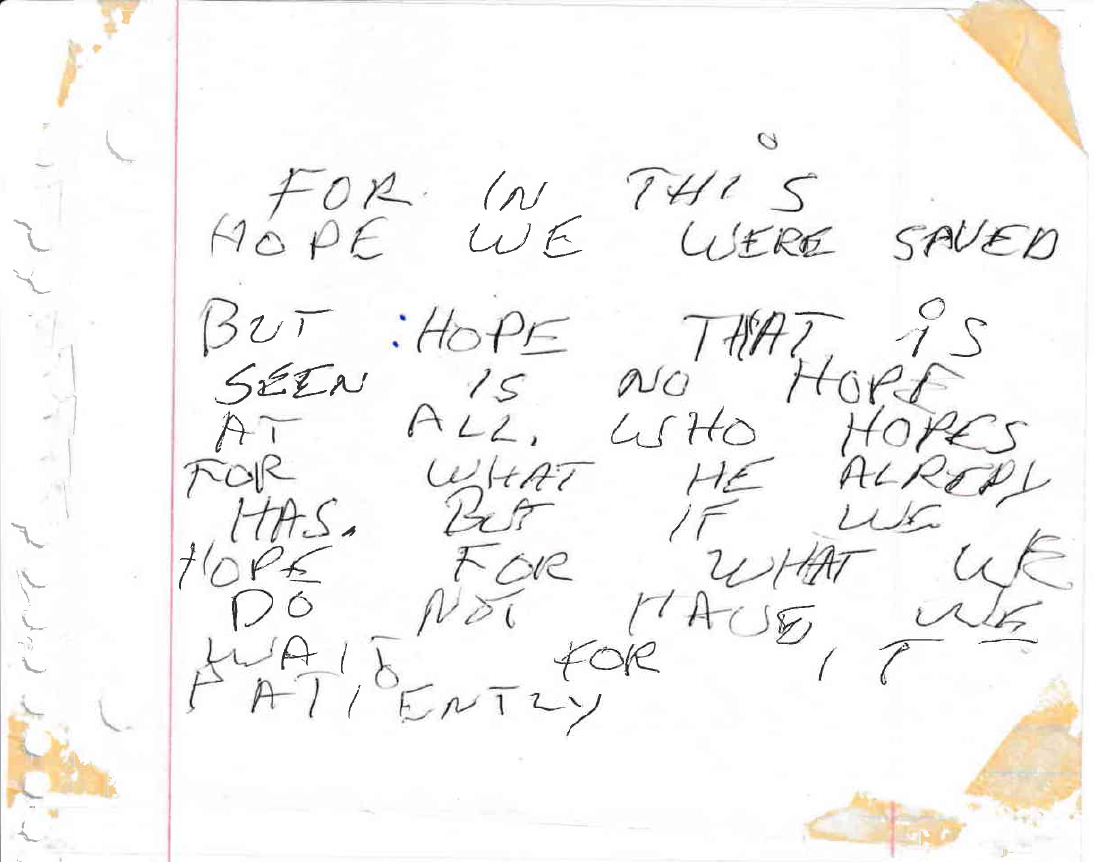 FOR IN THIS
HOPE WE WERE SAVED
BUT :HOPE THAT IS
SEEN IS NO HOPE
AT ALL. WHO HOPES
FOR WHAT HE ALREDY
HAS. BUT IF WE
HOPE FOR WHAT WE
DO NOT HAVE WE
WAIT FOR IT
PATIENTLY